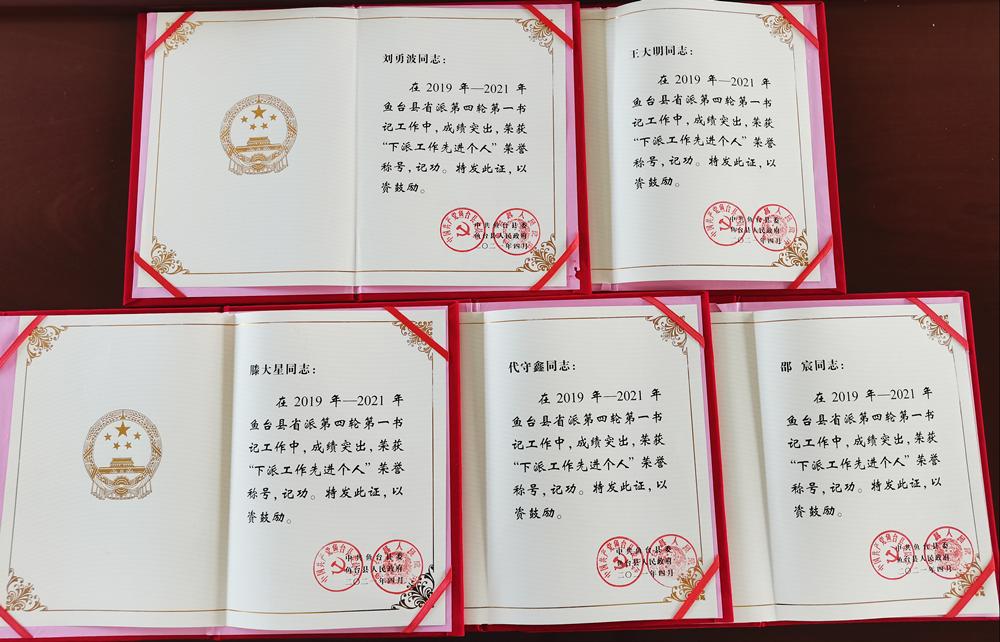 刘勇波同志：
在 2019 年—2021 年
鱼台县省派第四轮第一书
记工作中，成绩突出，荣获
“下派工作先进个人”荣誉
称号，记功。特发此证，以
资鼓励。
中共鱼台县委
鱼台县人民政府
二〇二一年四月
王大明同志：
在 2019 年—2021 年
鱼台县省派第四轮第一书
记工作中，成绩突出，荣获
“下派工作先进个人”荣誉
称号，记功。特发此证，以
资鼓励。
中共鱼台县委
鱼台县人民政府
二〇二一年四月
滕大星同志：
在 2019 年—2021 年
鱼台县省派第四轮第一书
记工作中，成绩突出，荣获
“下派工作先进个人”荣誉
称号，记功。特发此证，以
资鼓励。
中共鱼台县委
鱼台县人民政府
二〇二一年四月
代守鑫同志：
在 2019 年—2021 年
鱼台县省派第四轮第一书
记工作中，成绩突出，荣获
“下派工作先进个人”荣誉
称号，记功。特发此证，以
资鼓励。
中共鱼台县委
鱼台县人民政府
二〇二一年四月
邵 宸同志：
在 2019 年—2021 年
鱼台县省派第四轮第一书
记工作中，成绩突出，荣获
“下派工作先进个人”荣誉
称号，记功。特发此证，以
资鼓励。
中共鱼台县委
鱼台县人民政府
二〇二一年四月